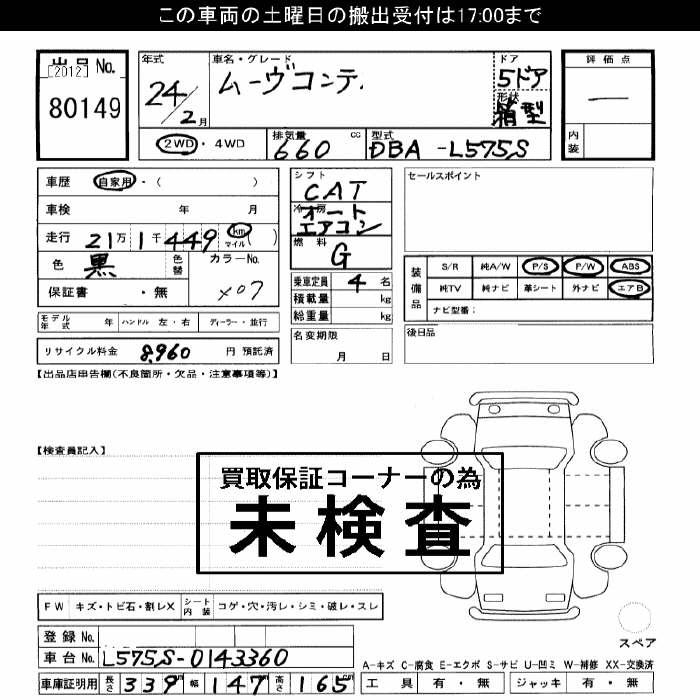 この車両の土曜日の搬出受付は17:00まで
出品 No.
[2012]
80149
年式
24/2月
車名・グレード
ムーヴコンテ
ドア
5ドア
形状
箱型
評価点
―
内装
2WD・4WD
排気量 660 cc
型式 DBA-L575S
車歴 自家用・( )
車検 年 月
走行 21万1千449 km マイル ( )
色 黒 色替
カラーNo. X07
保証書 ・無
シフト
CAT
冷房
オートエアコン
燃料
G
乗車定員 4 名
積載量 kg
総重量 kg
名変期限
月 日
セールスポイント
装備品
S/R 純A/W P/S P/W ABS
純TV 純ナビ 革シート 外ナビ エアB
ナビ型番:
後日品
モデル年式 年 ハンドル 左・右 ディーラー・並行
リサイクル料金 8,960 円 預託済
【出品店申告欄(不良箇所・欠品・注意事項等)】
【検査員記入】
買取保証コーナーの為
未検査
FW キズ・トビ石・割レX シート内装 コゲ・穴・汚レ・シミ・破レ・スレ
登録 No.
車台 No. L575S-0143360
車庫証明用 長さ 339cm 幅 147cm 高さ 165cm
スペア
A-キズ C-腐食 E-エクボ S-サビ U-凹ミ W-補修 XX-交換済
工具 有・無 ジャッキ 有・無